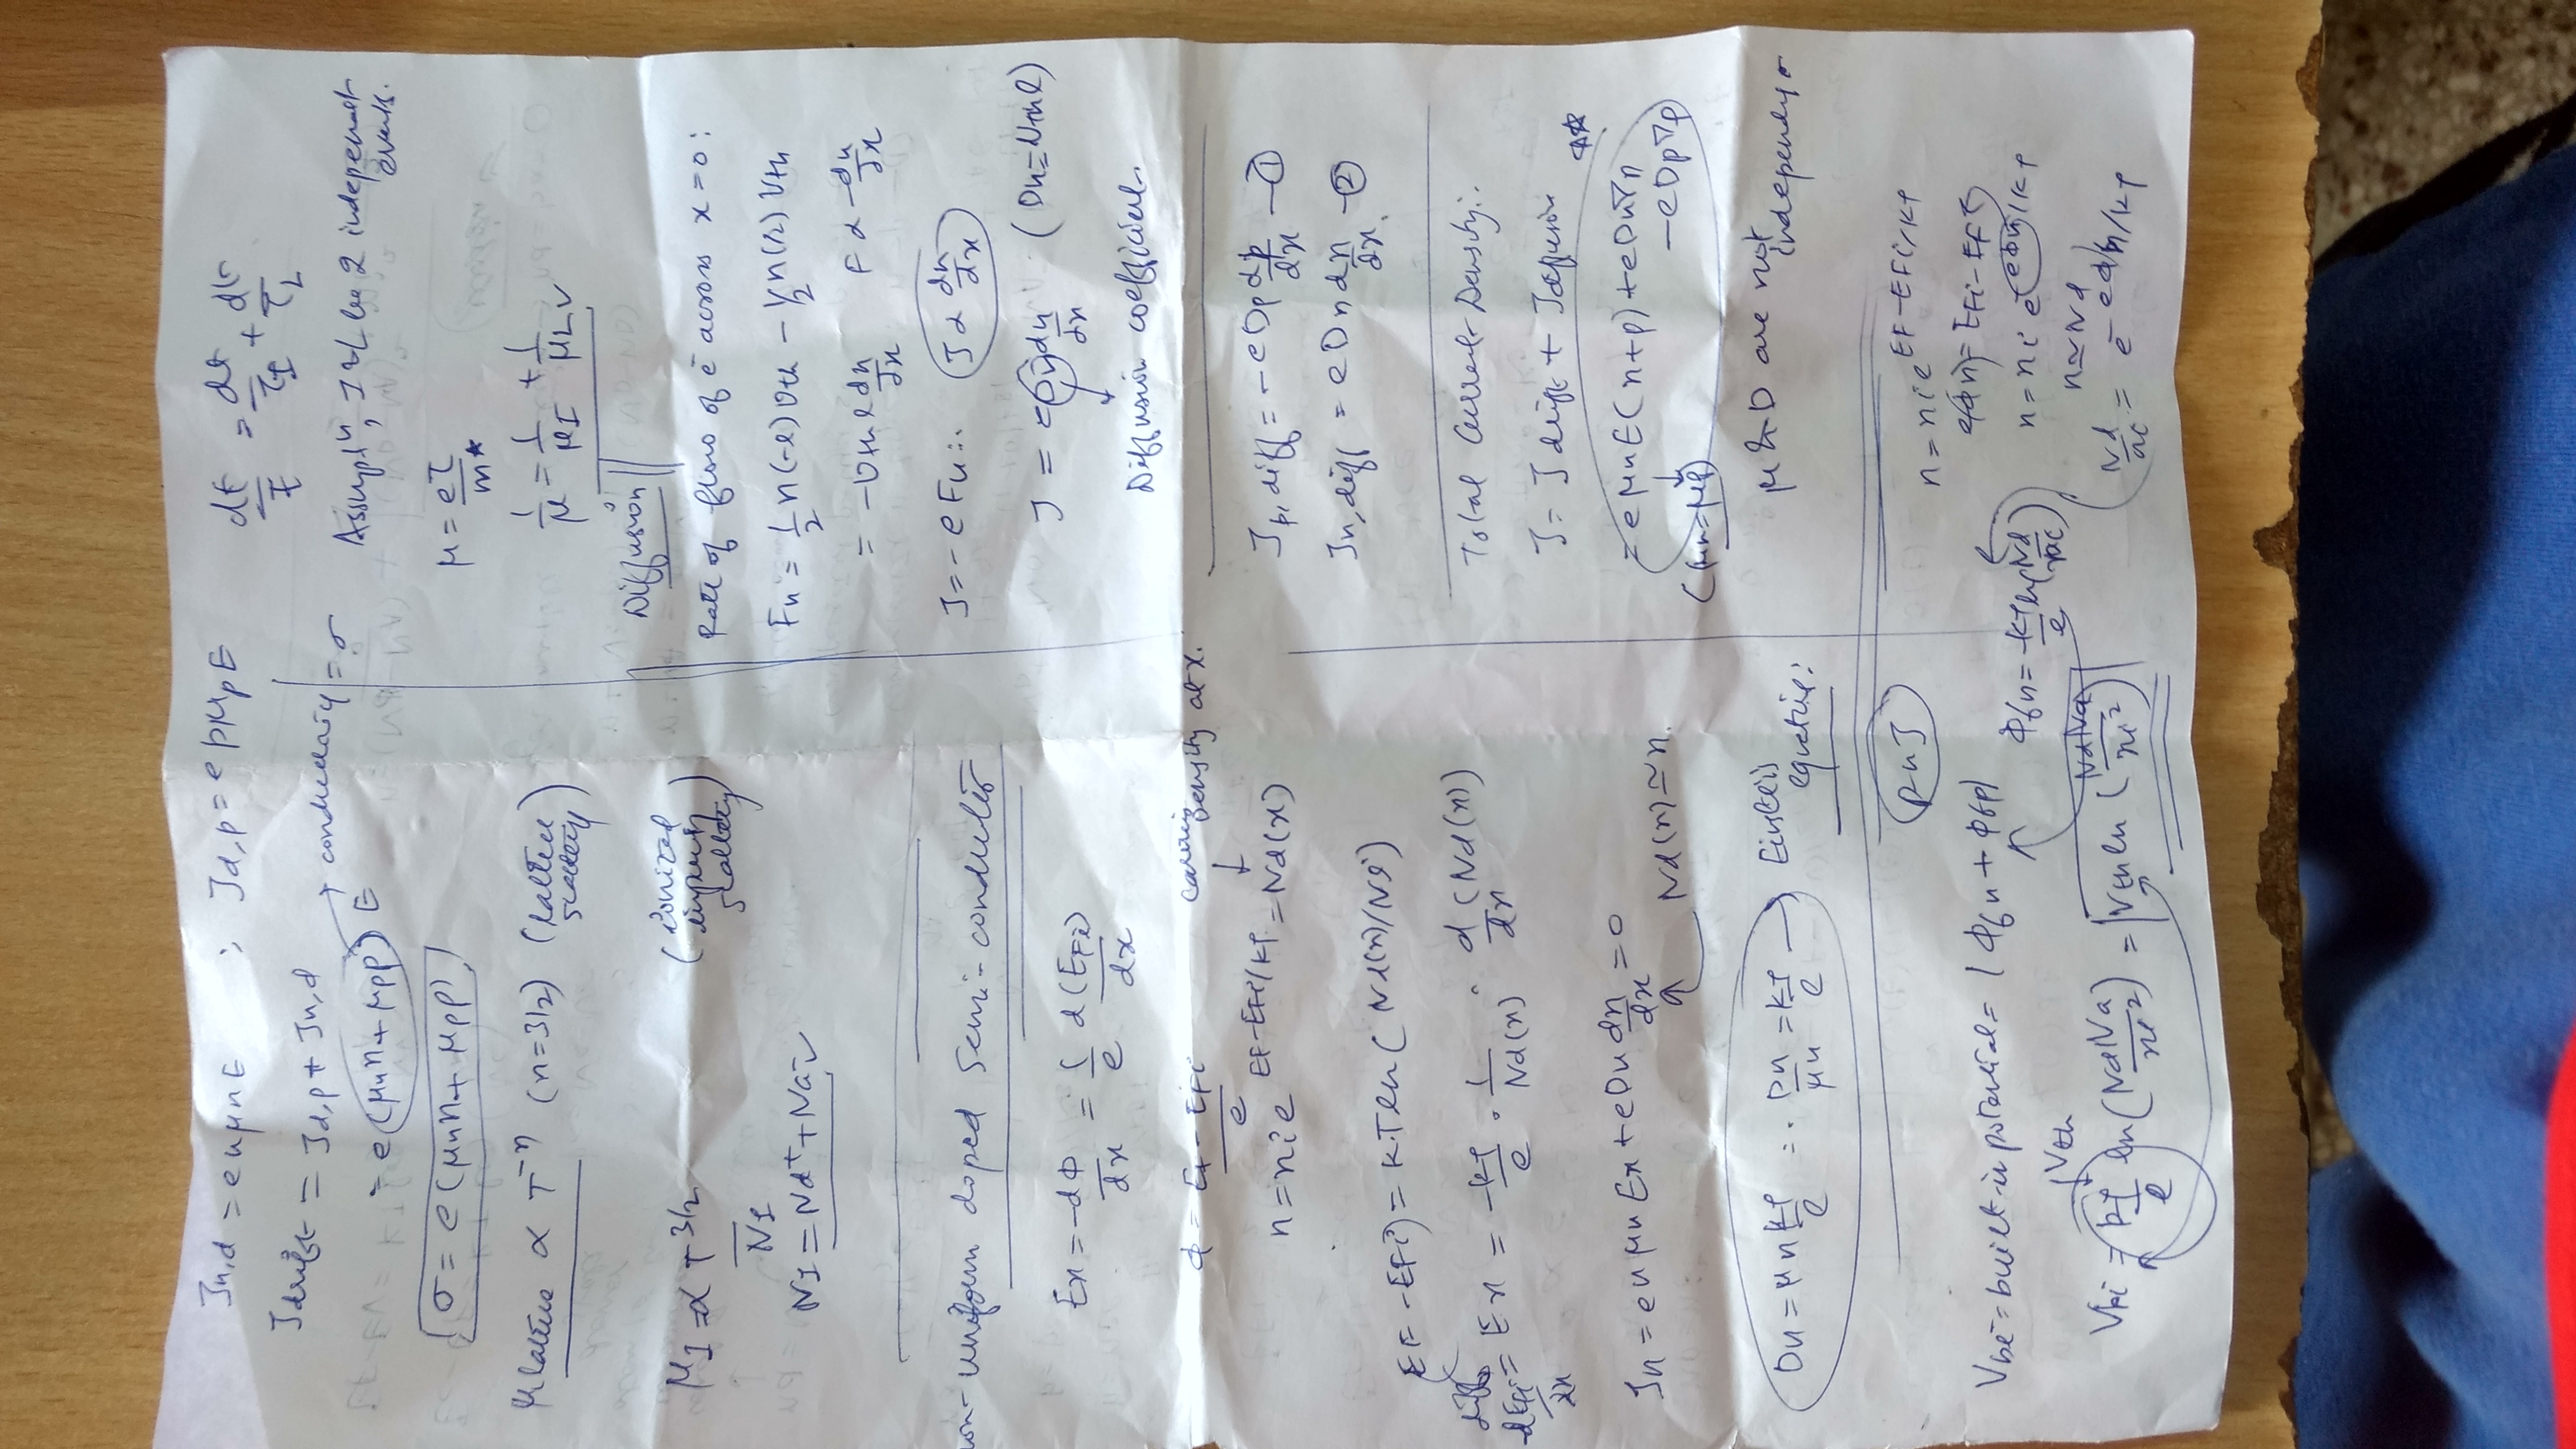 Jn,d = enμnE ; Jd,p = epμpE
Jdrift = Jd,p + Jn,d
= e(μnn + μpp)E → conductivity = σ
σ = e(μnn + μpp)
μlattice ∝ T^-n (n=3/2) (lattice scattering)
μI = ∝ T^3/2 / NI (ionized impurity scattering)
NI = Nd+ + Na-
non-uniform doped semi-conductor
Ex = -dϕ/dx = 1/e d(EFi)/dx
ϕ = EF - EFi / e
carrier density at x.
n = nie^EF-EFi/kT = Nd(x)
(EF - EFi) = kT ln(Nd(x)/Ni)
diff
-dEFi/dx = Ex = -kT/e · 1/Nd(x) · d/dx (Nd(x))
Jn = enμnEx + eDn dn/dx = 0
Nd(x) ≃ n.
Dn = μn kT/e = . Dn/μn = kT/e → Einstein's equation:
dt/τ = dt/τI + dt/τL
Assumptn, I & L be 2 independent events.
μ = eτ/m*
1/μ = 1/μI + 1/μL
Diffusion
Rate of flow of e- across x=0:
Fn = 1/2 n(-l) vth - 1/2 n(l) vth
= -vth l dn/dx F ∝ -dn/dx
J = -eFn ∴ J ∝ dn/dx
J = eDn dn/dx (Dn = vth l)
Diffusion coefficient.
Jp,diff = -eDp dp/dx —①
Jn,diff = eDn dn/dx. —②
Total Current Density:.
J = Jdrift + Jdiffusion
☆☆
= eμnE(n+p) + eDn∇n
-eDp∇p
(μn=μp)
μ & D are not
independent
PnJ
Vbi = built-in potential = |ϕfn + ϕfp|
Vth
Vbi = kT/e ln(NdNa/ni²) = Vth ln(NdNa/ni²)
ϕfn = -kT/e ln(Nd/ni)
n = nie^EF-EFi/kT
e(ϕn) = EFi-EF
n = ni e^-eϕn/kT
n ≃ Nd
Nd/ni = e^-eϕfn/kT